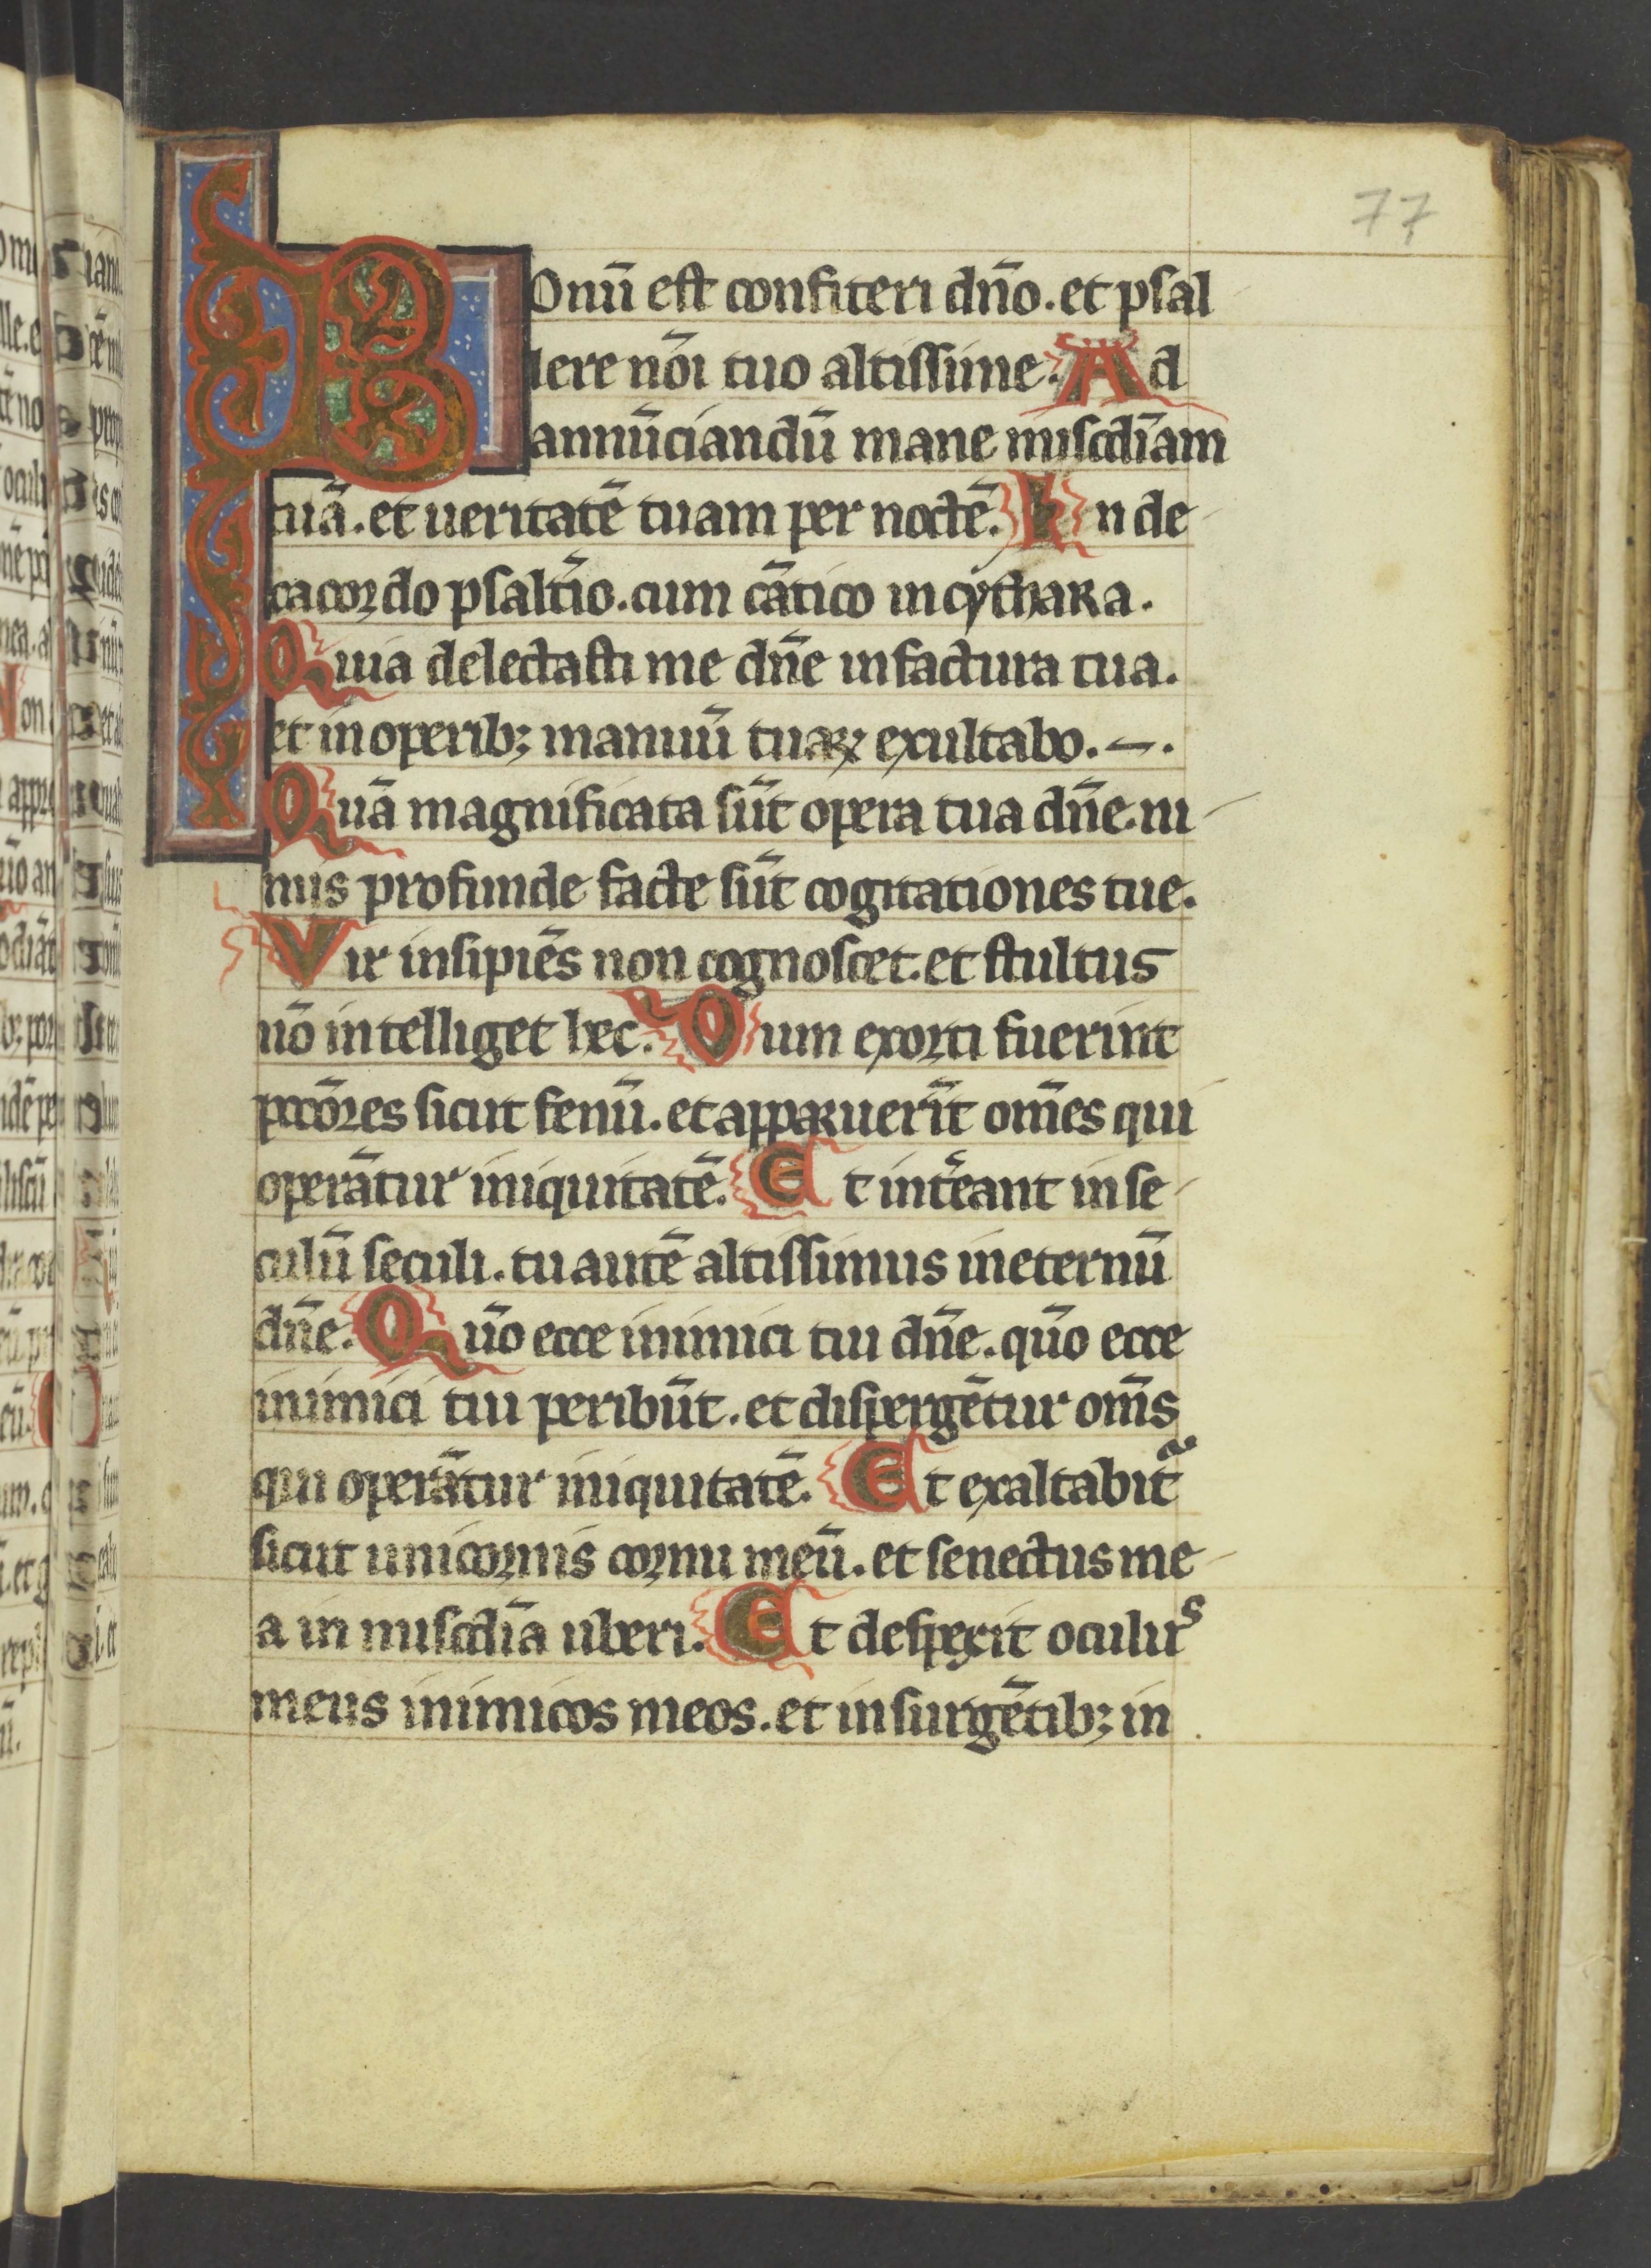 77
BOnū est confiteri dn̄o. et psal
lere nōi tuo altissime. Ad
annūciandū mane misc̄diam
tuā. et ueritatē tuam per noctē. In de
cacordo psalt̄io. cum cātico in cythara.
Quia delectasti me dn̄e in factura tua.
et in operib; manuū tuaꝝ exultabo.
Quā magnificata sūt opera tua dn̄e. ni
mis profunde facte sūt cogitationes tue.
Vir insipiēs non cognoscet. et stultus
nō intelliget hec. Cum exorti fuerint
pccōres sicut fenū. et apparuerīt om̄es qui
operātur iniquitatē. Et int̄eant in se
culū seculi. tu autē altissimus in eternū
dn̄e. Qūo ecce inimici tui dn̄e. qūo ecce
inimici tui peribūt. et dispergētur om̄s
qui operātur iniquitatē. Et exaltabit᷑
sicut unicornis cornu meū. et senectus me
a in misc̄dia uberi. Et despexit oculus
meus inimicos meos. et insurgētib; in